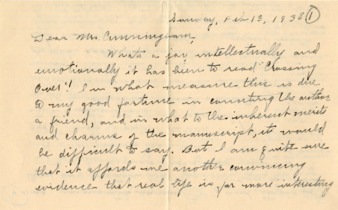 Sunday, Feb 13, 1938 (1)
Dear Mrs. Cunningham,
What a joy, intellectually and
emotionally it has been to read "Crossing
Over"! In what measure this is due
to my good fortune in counting the author
a friend, and in what to the inherent merits
and charms of the manuscript, it would
be difficult to say. But I am quite sure
that it affords one another convincing
evidence that real life is far more interesting